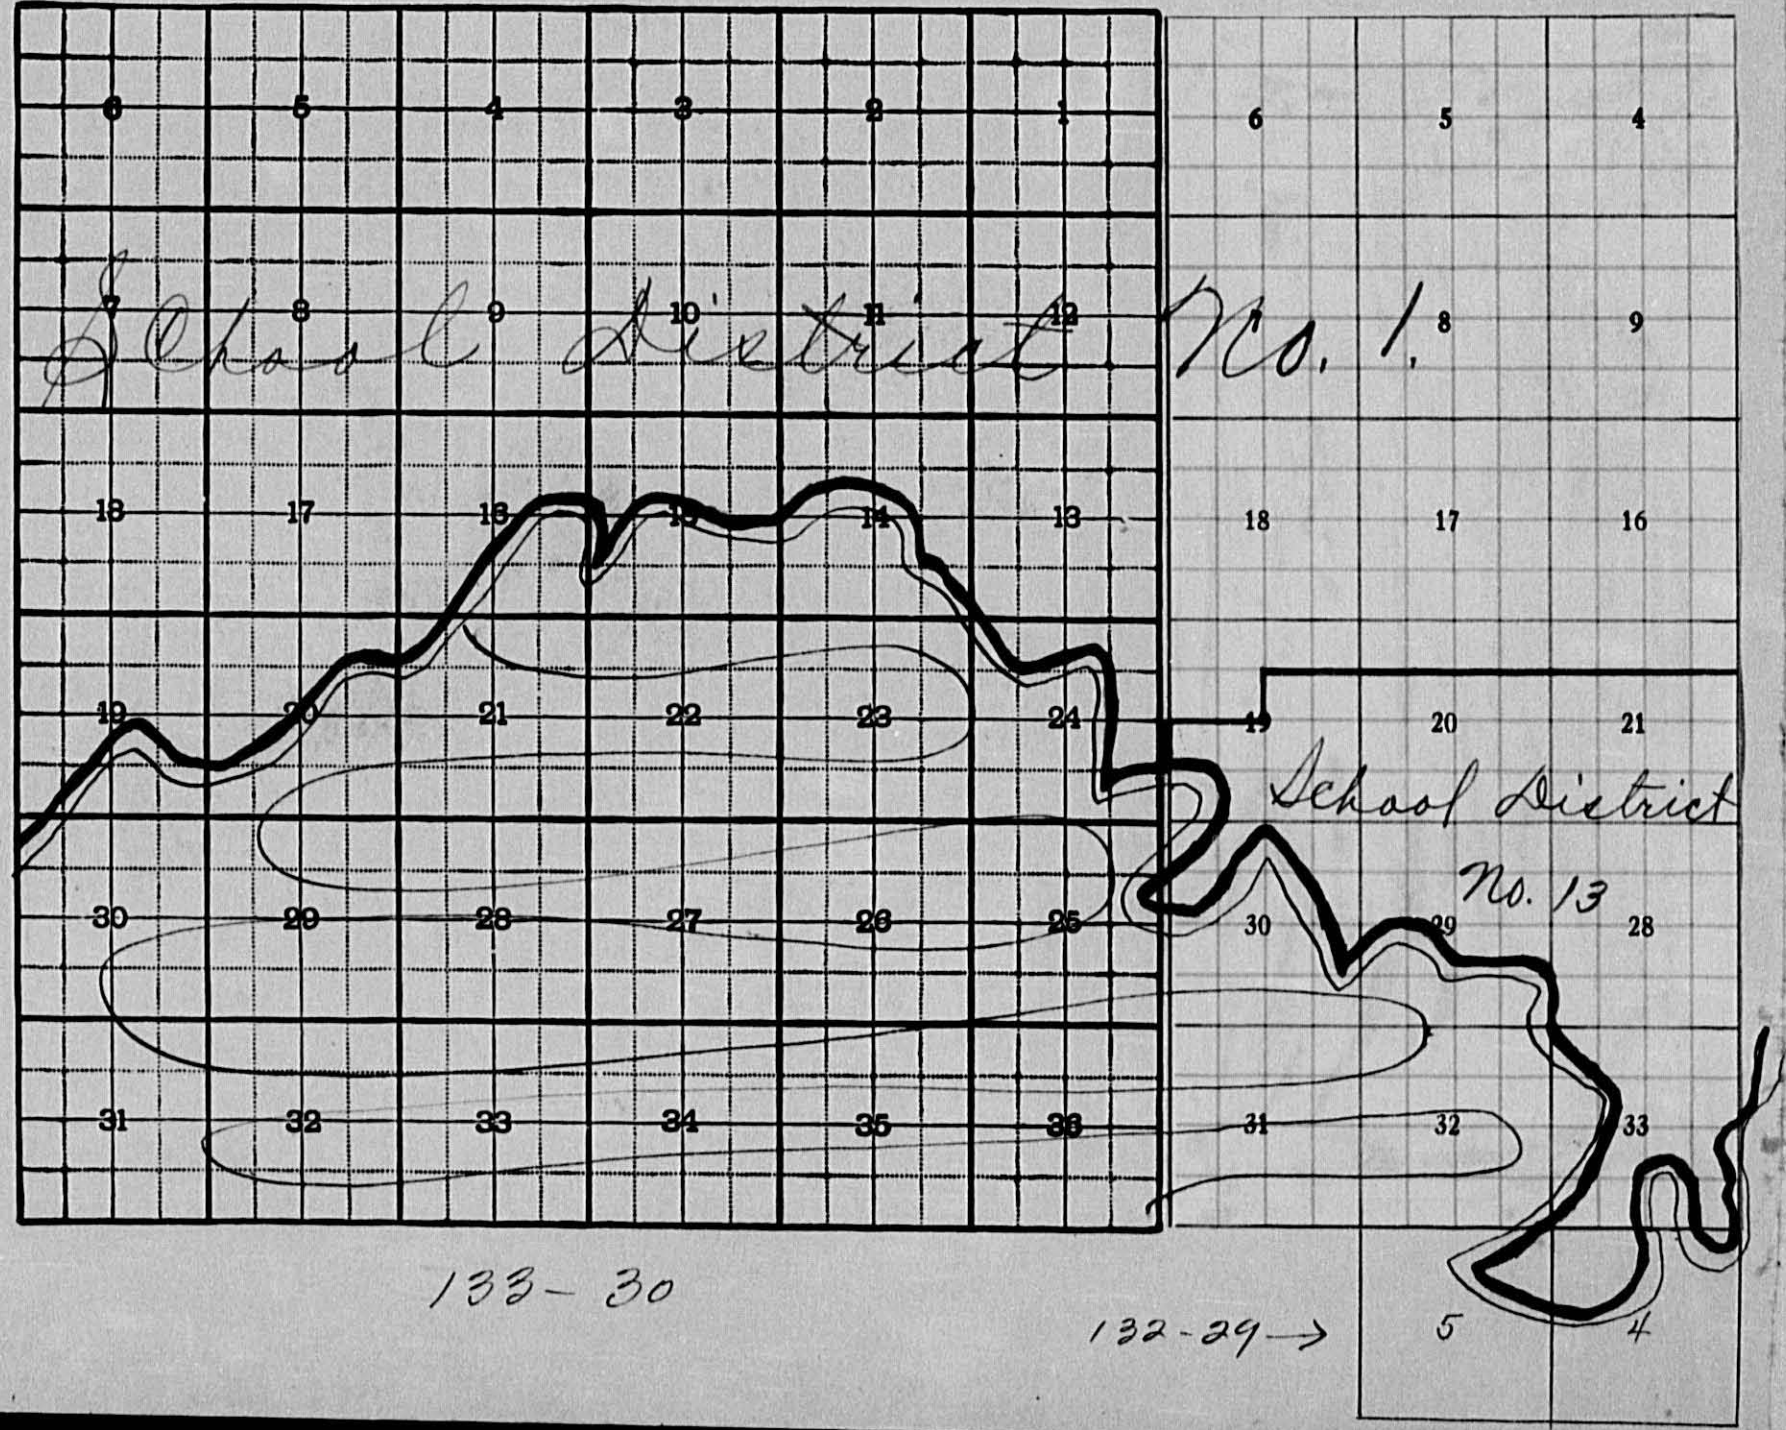 6 5 4 3 2 1 6 5 4
7 8 9 10 11 12 8 9
School District No. 1.
18 17 16 15 14 13 18 17 16
19 20 21 22 23 24 19 20 21
School District
No. 13
30 29 28 27 26 25 30 29 28
31 32 33 34 35 36 31 32 33
133-30
132-29→ 5 4